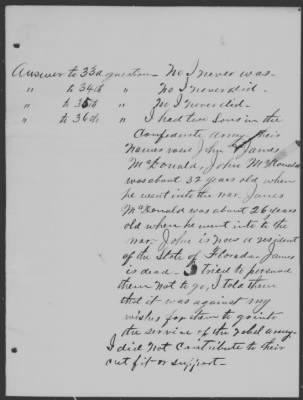 Answer to 33d question - No I never was -
" to 34th " No I never did -
" to 35th " No I never did -
" to 36th " I had two Sons in the
Confederate army their
names were John & James
McDonald, John McDonald
was about 32 years old when
he went into the war. James
McDonald was about 26 years
old when he went into to the
war. John is now a resident
of the State of Florada. James
is dead - I tried to persuad
them not to go, I told them
that it was against my
wishes for them to go into
the service of the rebel army -
I did not contribute to their
out fit or support -